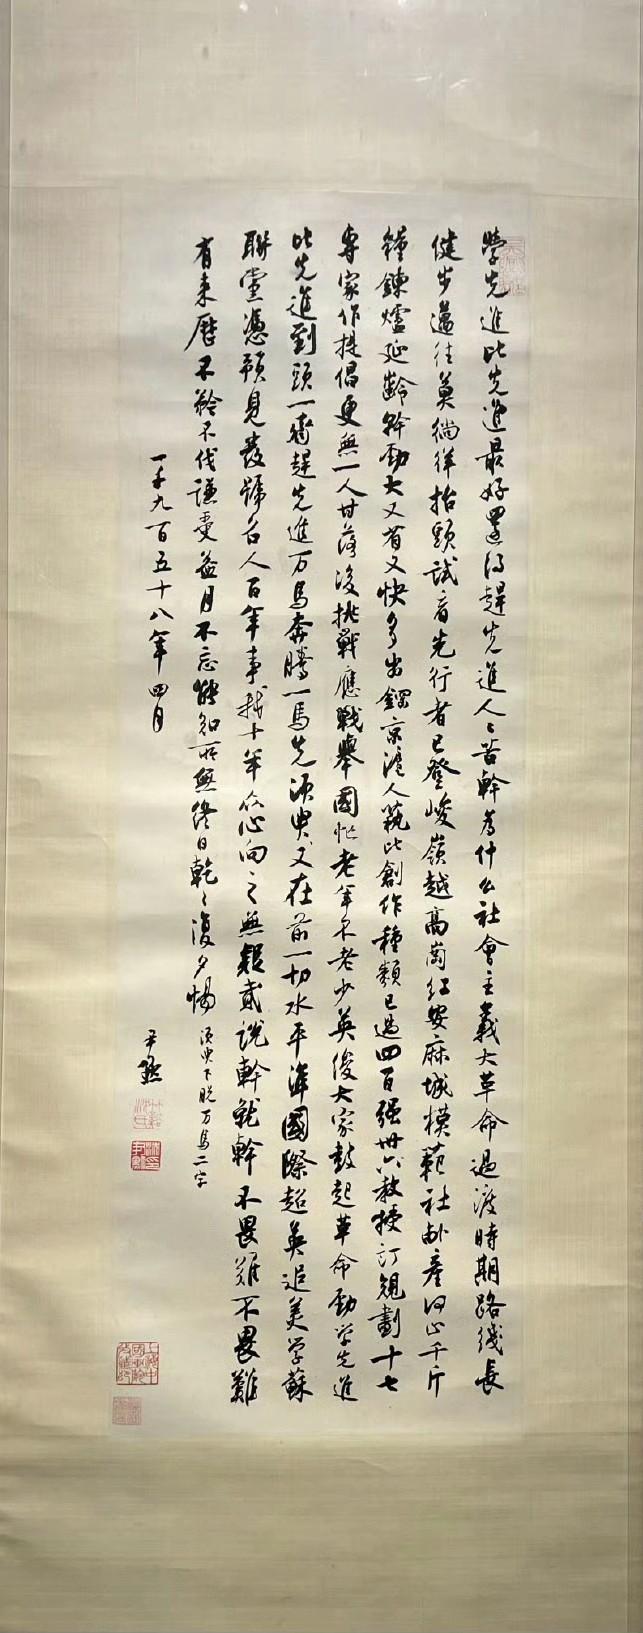 學先進比先進最好還得趕先進人々苦幹為什么社會主義大革命過渡時期路綫長
健步邁往莫徜徉抬頭試看先行者已登峻嶺越高崗紅安麻城模範社畝產何止千斤
糧鍊爐延齡幹勁大又省又快多出鋼京滬人藝比創作種類已過四百强卅六教授訂規劃十七
專家作提倡更無一人甘落後挑戰應戰舉國忙老年不老少英俊大家鼓起革命勁學先進
比先進到頭一齊趕先進万馬奔騰一馬先須臾又在前一切水平準國際超英追美學蘇
聯黨憑預見發號召人百年事我十年众心向之無疑貳說幹就幹不畏難不畏難
有来歷不矜不伐謙受益月不忘能知所無終日乾々復夕惕
須臾下脱万馬二字
一千九百五十八年四月
尹默